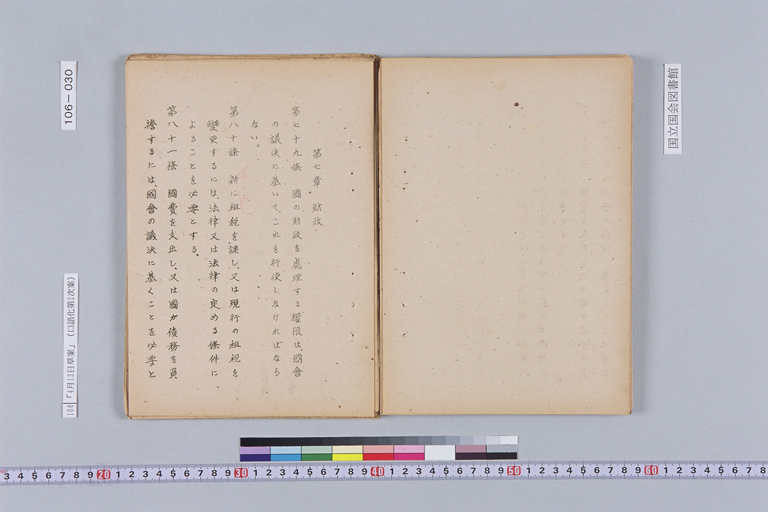 第七章 財政
第七十九條 國の財政を處理する權限は、國會
の議決に基いてこれを行使しなければなら
ない。
第八十條 新に租税を課し、又は現行の租税を
變更するには、法律又は法律の定める條件に
よることを必要とする。
第八十一條 國費を支出し、又は國が債務を負
擔するには、國會の議決に基くことを必要と
106-030
106 「4月13日草案」(口語化第2次案)
国立国会図書館
3 4 5 6 7 8 9 20 1 2 3 4 5 6 7 8 9 30 1 2 3 4 5 6 7 8 9 40 1 2 3 4 5 6 7 8 9 50 1 2 3 4 5 6 7 8 9 60 1 2 3 4 5 6 7 8